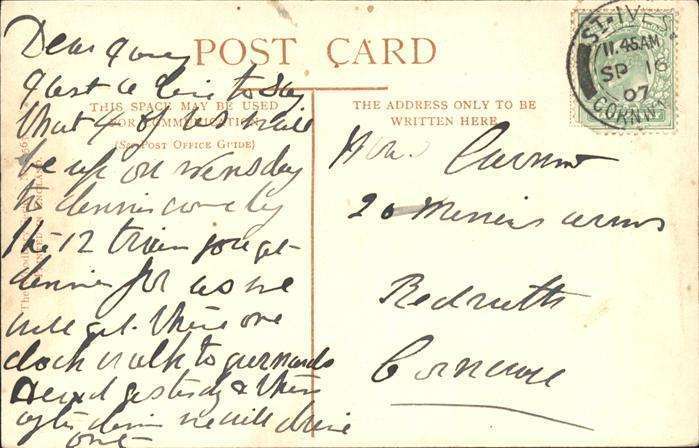 POST CARD
THIS SPACE MAY BE USED
FOR COMMUNICATION
(SEE POST OFFICE GUIDE)
THE ADDRESS ONLY TO BE
WRITTEN HERE
ST. IVES
11.45AM
SP 16
07
CORNWALL
Dear
just a line to say
that 4 of us will
be up on wensday
to dinner come by
the 12 train you get
dinner for us we
will get there one
clock walk to gurnards
head yestedy & then
after dinner we will drive
out
20 Miners arms
Redruth
Cornwall